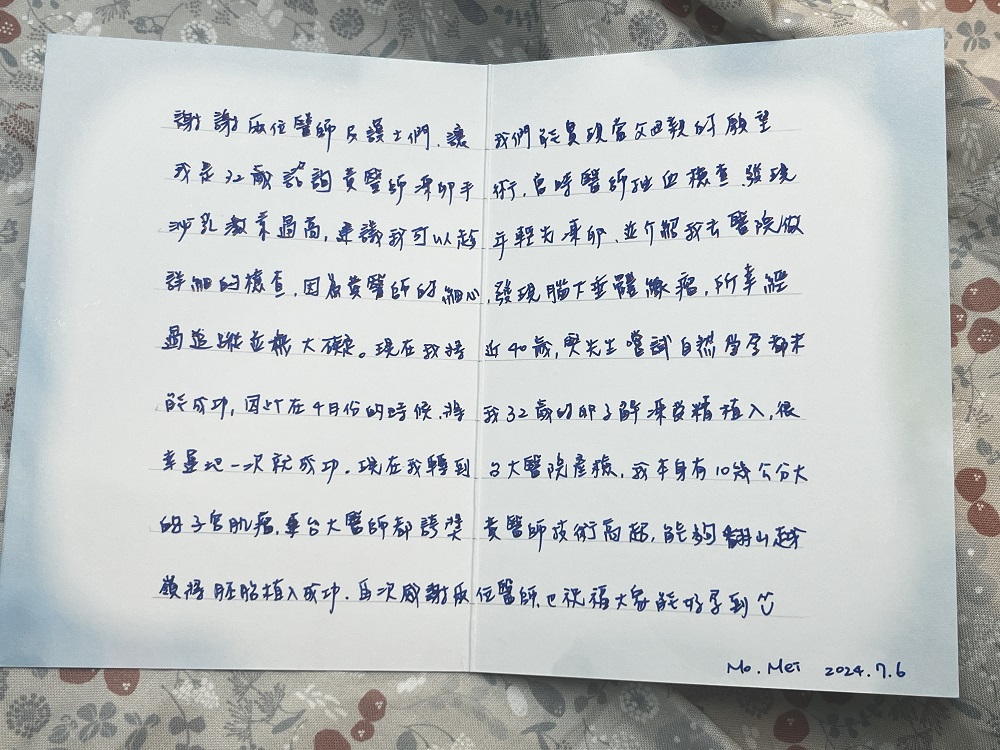 謝謝每位醫師及護士們，讓我們能實現當父母親的願望
我是32歲諮詢黃醫師凍卵手術，當時醫師抽血檢查發現
泌乳激素過高，建議我可以趁年輕先凍卵，並介紹我去醫院做
詳細的檢查，因為黃醫師的細心，發現腦下垂體腺瘤，所幸經
過追蹤並無大礙。現在我將近40歲，與先生嘗試自然受孕都未
能成功，因此在4月份的時候，將我32歲的卵子解凍受精植入，很
幸運地一次就成功，現在我轉到台大醫院產檢，我本身有10幾公分大
的子宮肌瘤，連台大醫師都誇獎黃醫師技術高超，能夠翻山越
嶺將胚胎植入成功，再次感謝每位醫師，也祝福大家能好孕到
Mo. Mei 2024.7.6